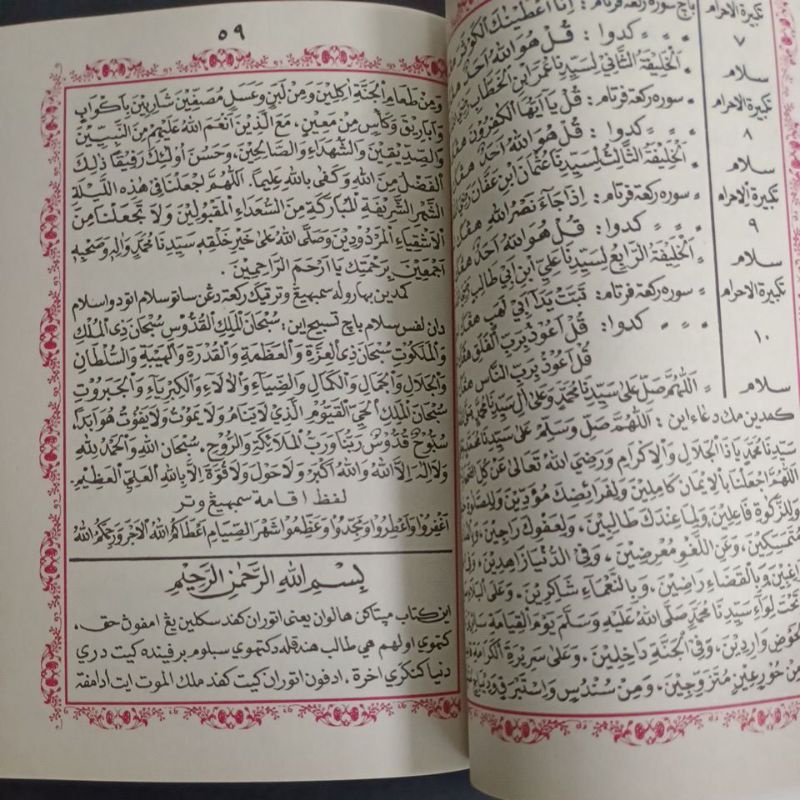 تكبيرة الاحرام
باچ سوره ركعة فرتام : اِنَّا اَعْطَيْنٰكَ الْكَوْثَرَ
٧
〃 〃 كدوا : قُلْ هُوَ اللهُ اَحَدٌ
سلام
〃 اَلْخَلِيْفَةُ الثَّانِيْ لِسَيِّدِنَا عُمَرَ ابْنِ الْخَطَّابِ
تكبيرة الاحرام
〃 سوره ركعة فرتام : قُلْ يَا اَيُّهَا الْكٰفِرُوْنَ
٨
〃 〃 كدوا : قُلْ هُوَ اللهُ اَحَدٌ
سلام
〃 اَلْخَلِيْفَةُ الثَّالِثُ لِسَيِّدِنَا عُثْمَانَ ابْنِ عَفَّانَ
تكبيرة الاحرام
〃 سوره ركعة فرتام : اِذَا جَاءَ نَصْرُ اللهِ
٩
〃 〃 كدوا : قُلْ هُوَ اللهُ اَحَدٌ
سلام
〃 اَلْخَلِيْفَةُ الرَّابِعُ لِسَيِّدِنَا عَلِيِّ ابْنِ اَبِيْ طَالِبٍ
تكبيرة الاحرام
〃 سوره ركعة فرتام : تَبَّتْ يَدَا اَبِيْ لَهَبٍ
١٠
〃 〃 كدوا : قُلْ اَعُوْذُ بِرَبِّ الْفَلَقِ
قُلْ اَعُوْذُ بِرَبِّ النَّاسِ
سلام
〃 اَللّٰهُمَّ صَلِّ عَلٰى سَيِّدِنَا مُحَمَّدٍ وَعَلٰى اٰلِ سَيِّدِنَا مُحَمَّدٍ
كمدين مك دعاء اين : اَللّٰهُمَّ صَلِّ وَسَلِّمْ عَلٰى سَيِّدِنَا
سَيِّدِنَا مُحَمَّدٍ يَاذَا الْجَلَالِ وَالْاِكْرَامِ وَرَضِيَ اللهُ تَعَالٰى عَنْ كُلِّ
اَللّٰهُمَّ اجْعَلْنَا بِالْاِيْمَانِ كَامِلِيْنَ وَلِفَرَائِضِكَ مُؤَدِّيْنَ
وَلِلزَّكٰوةِ فَاعِلِيْنَ وَلِمَا عِنْدَكَ طَالِبِيْنَ، وَلِعَفْوِكَ رَاجِيْنَ
مُتَمَسِّكِيْنَ، وَعَنِ اللَّغْوِ مُعْرِضِيْنَ، وَفِي الدُّنْيَا زَاهِدِيْنَ
رَاغِبِيْنَ وَبِالْقَضَاءِ رَاضِيْنَ، وَبِالنَّعْمَاءِ شَاكِرِيْنَ، وَعَلَى
تَحْتَ لِوَاءِ سَيِّدِنَا مُحَمَّدٍ صَلَّى اللهُ عَلَيْهِ وَسَلَّمَ يَوْمَ الْقِيَامَةِ
الْحَوْضِ وَارِدِيْنَ، وَفِي الْجَنَّةِ دَاخِلِيْنَ، وَعَلٰى سَرِيْرَةِ
مِنْ حُوْرِ عِيْنٍ مُتَزَوِّجِيْنَ، وَمِنْ سُنْدُسٍ وَاِسْتَبْرَقٍ
٥٩
وَمِنْ طَعَامِ الْجَنَّةِ اٰكِلِيْنَ وَمِنْ لَبَنٍ وَعَسَلٍ مُصَفَّيْنِ شَارِبِيْنَ بِاَكْوَابٍ
وَاَبَارِيْقَ وَكَأْسٍ مِنْ مَعِيْنٍ، مَعَ الَّذِيْنَ اَنْعَمَ اللهُ عَلَيْهِمْ مِنَ النَّبِيِّيْنَ
وَالصِّدِّيْقِيْنَ وَالشُّهَدَاءِ وَالصَّالِحِيْنَ، وَحَسُنَ اُولٰئِكَ رَفِيْقًا ذٰلِكَ
الْفَضْلُ مِنَ اللهِ وَكَفٰى بِاللهِ عَلِيْمًا. اَللّٰهُمَّ اجْعَلْنَا فِيْ هٰذِهِ اللَّيْلَةِ
الشَّهْرِ الشَّرِيْفَةِ الْمُبَارَكَةِ مِنَ السُّعَدَاءِ الْمَقْبُوْلِيْنَ وَلَا تَجْعَلْنَا مِنَ
الْاَشْقِيَاءِ الْمَرْدُوْدِيْنَ وَصَلَّى اللهُ عَلٰى خَيْرِ خَلْقِهِ سَيِّدِنَا مُحَمَّدٍ وَاٰلِهِ وَصَحْبِهِ
اَجْمَعِيْنَ بِرَحْمَتِكَ يَا اَرْحَمَ الرَّاحِمِيْنَ.
كمدين بهاروله سمبهيڠ وتر تيڬ ركعة دڠن ساتو سلام اتو دوا سلام
دان لفس سلام باچ تسبيح اين : سُبْحَانَ الْمَلِكِ الْقُدُّوْسِ سُبْحَانَ ذِي الْمُلْكِ
وَالْمَلَكُوْتِ سُبْحَانَ ذِي الْعِزَّةِ وَالْعَظَمَةِ وَالْقُدْرَةِ وَالْهَيْبَةِ وَالسُّلْطَانِ
وَالْجَلَالِ وَالْجَمَالِ وَالْكَمَالِ وَالضِّيَاءِ وَالْاٰلَاءِ وَالْكِبْرِيَاءِ وَالْجَبَرُوْتِ
سُبْحَانَ الْمَلِكِ الْحَيِّ الْقَيُّوْمِ الَّذِيْ لَا يَنَامُ وَلَا يَمُوْتُ وَلَا يَفُوْتُ هُوَ اَبَدًا.
سُبُّوْحٌ قُدُّوْسٌ رَبُّنَا وَرَبُّ الْمَلَائِكَةِ وَالرُّوْحِ. سُبْحَانَ اللهِ وَالْحَمْدُ لِلّٰهِ
وَلَا اِلٰهَ اِلَّا اللهُ وَاللهُ اَكْبَرُ وَلَا حَوْلَ وَلَا قُوَّةَ اِلَّا بِاللهِ الْعَلِيِّ الْعَظِيْمِ.
لفظ اقامة سمبهيڠ وتر
وَمَجِّدُوْا وَعَظِّمُوْا شَهْرَ الصِّيَامِ اَعْطَاكُمُ اللهُ الْاَجْرَ وَرَحِمَكُمُ اللهُ
بِسْمِ اللهِ الرَّحْمٰنِ الرَّحِيْمِ
اين كتاب ميتاكن هالوان يعني اتوران كفد سكلين يڠ امفون حق،
كتهوي اولهم هي طالب هندقله دكتهوي سبلوم برفينده كيت دري
دنيا كنڬري اخرة، ادفون اتوران كيت كفد ملك الموت ايت ادامفة